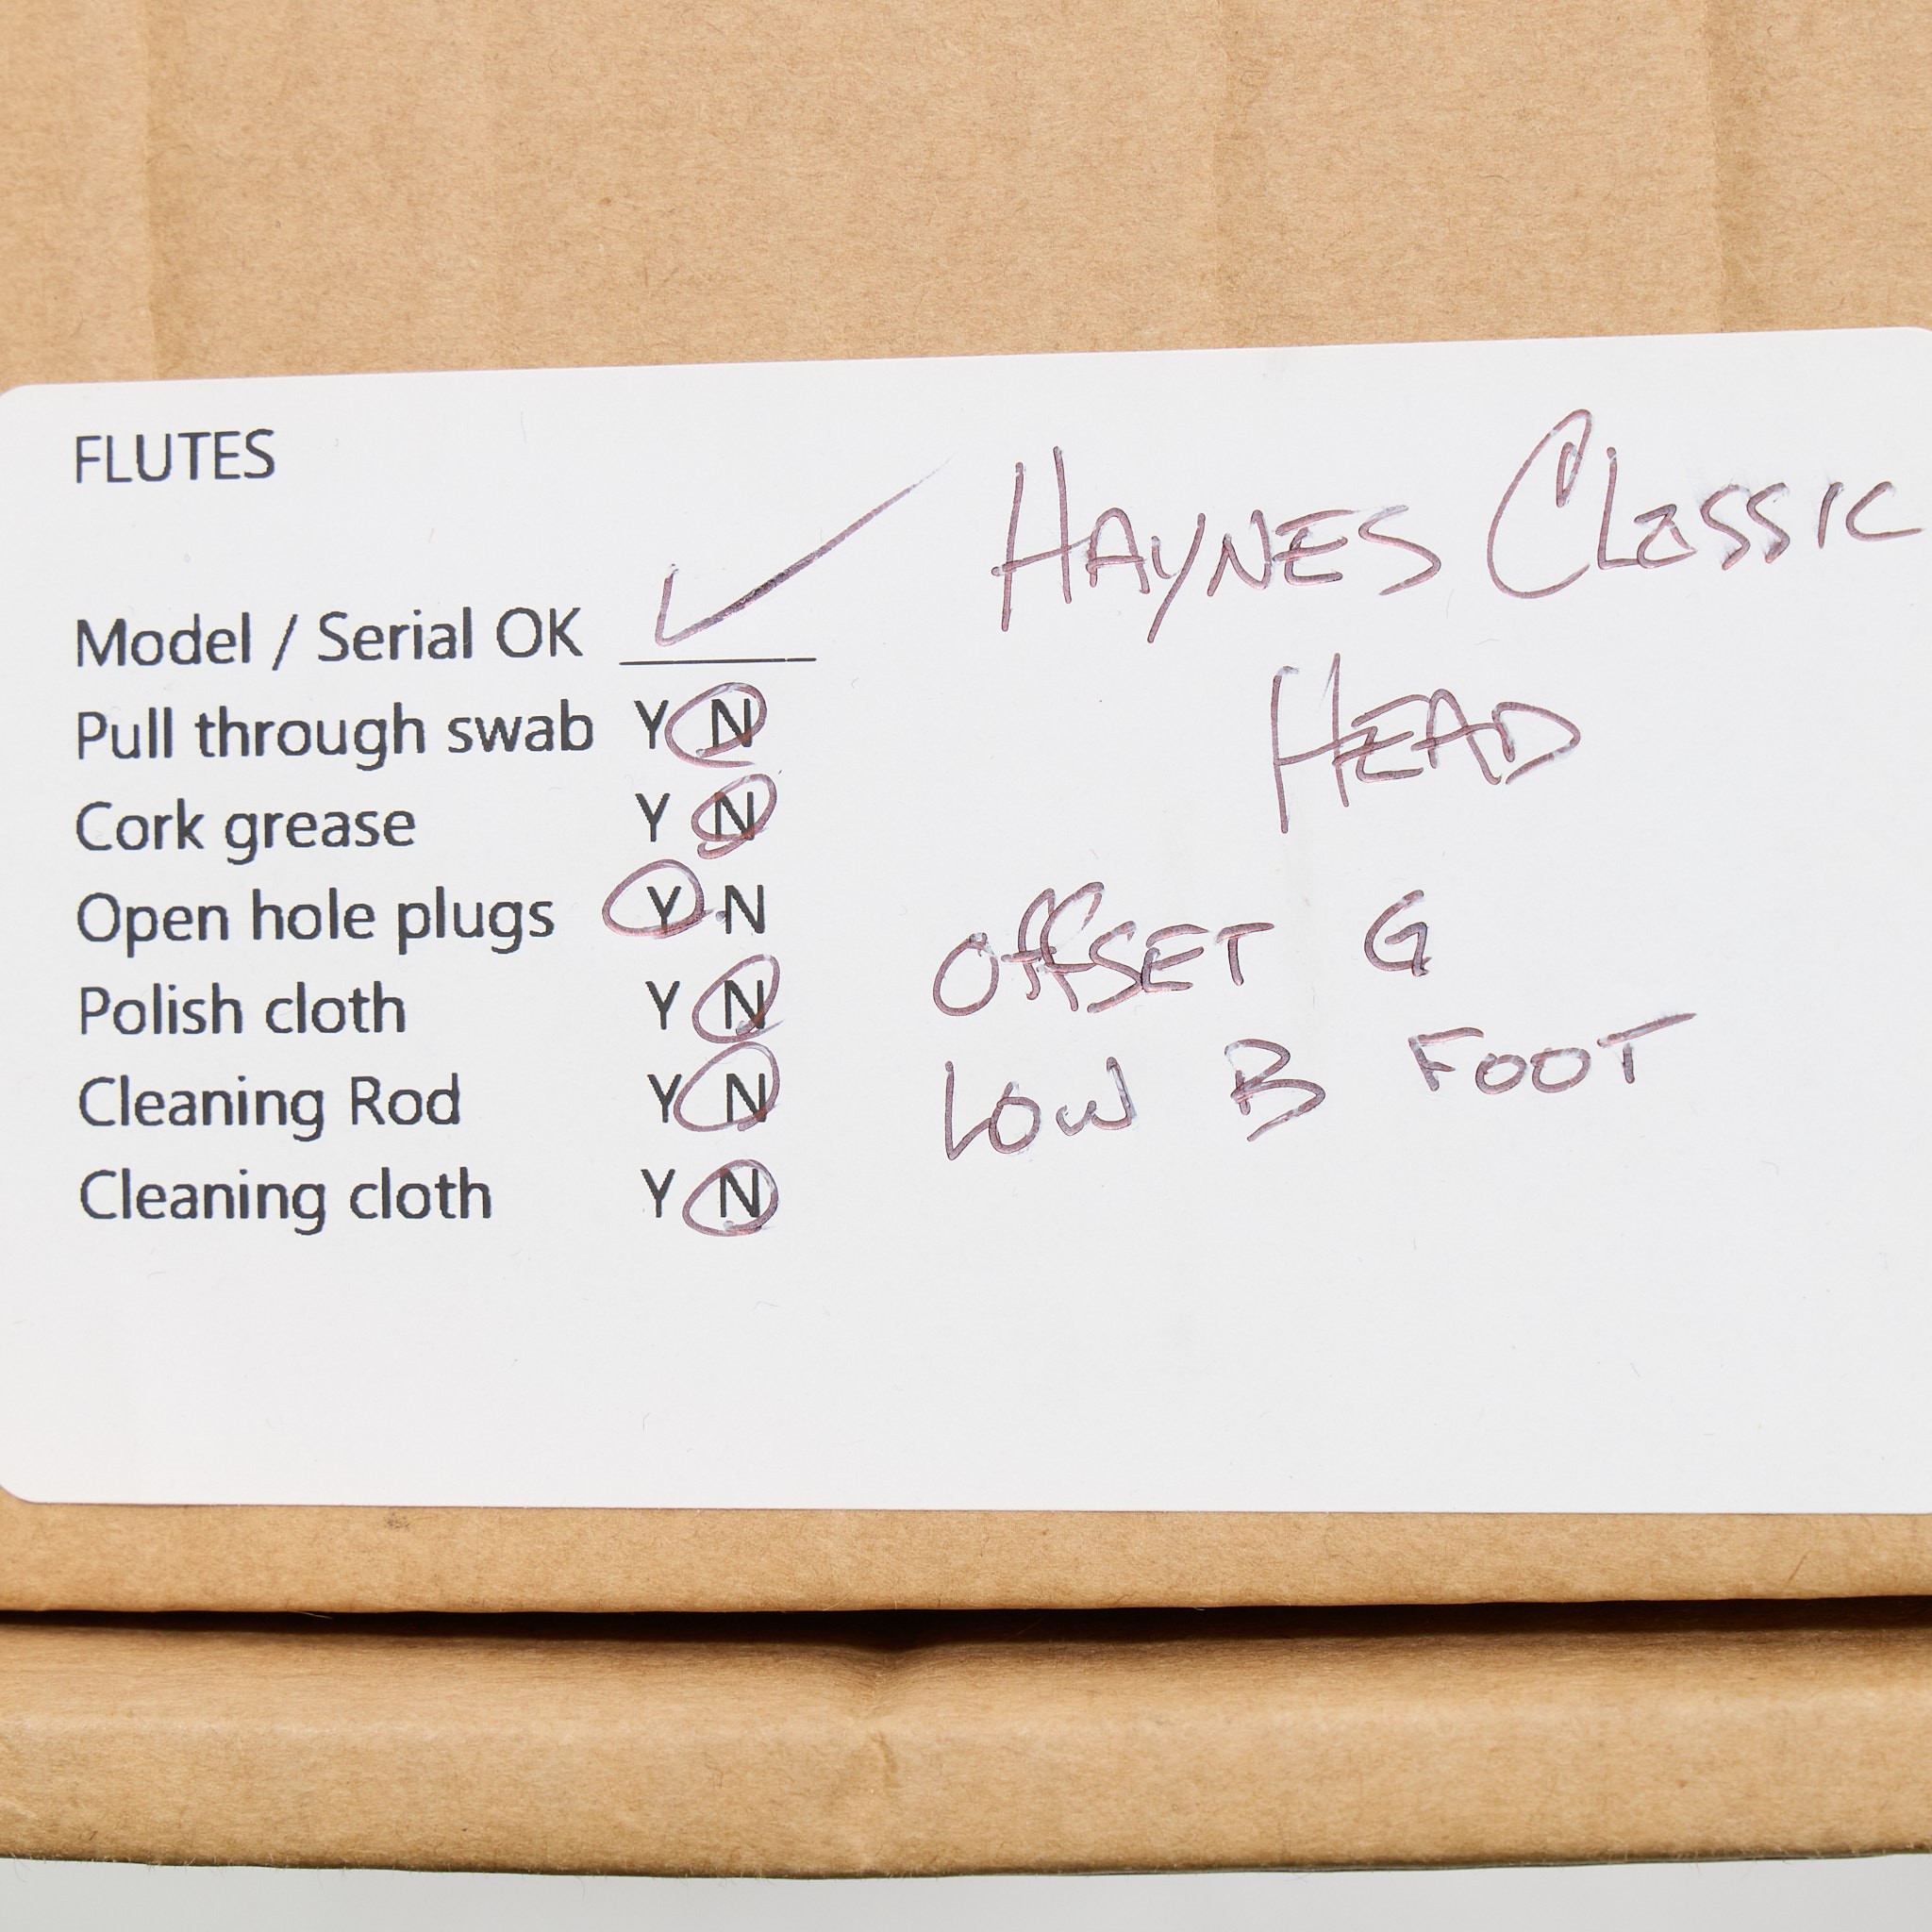 FLUTES
Model / Serial OK ✓
Pull through swab Y N
Cork grease Y N
Open hole plugs Y N
Polish cloth Y N
Cleaning Rod Y N
Cleaning cloth Y N
HAYNES CLASSIC
HEAD
OFFSET G
LOW B FOOT